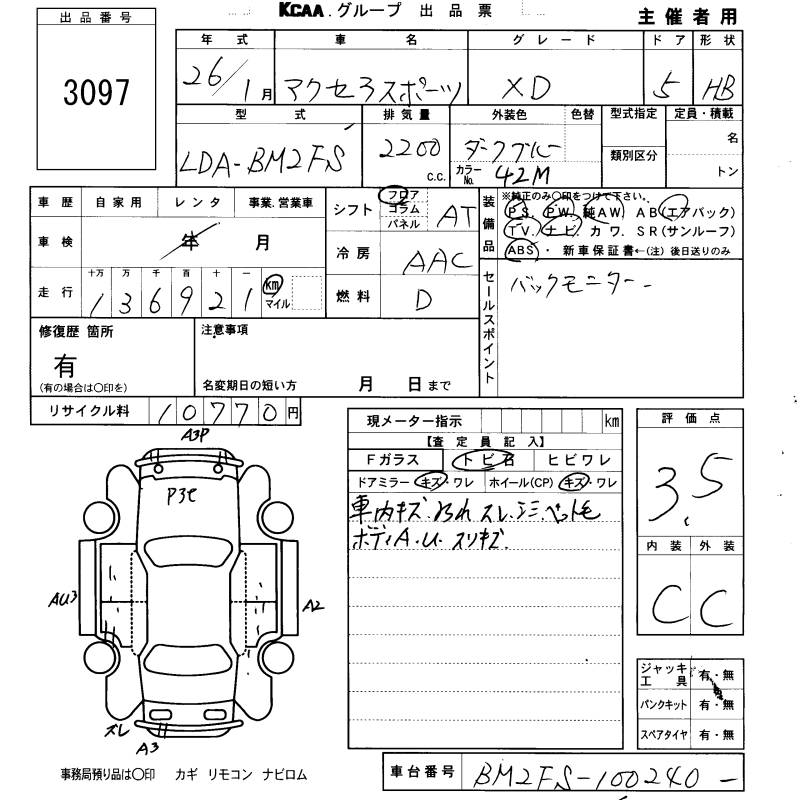 KCAA.グループ 出品票
主催者用
出品番号
3097
年式 車名 グレード ドア 形状
26/1月 マクセラスポーツ XD 5 HB
型式 排気量 外装色 色替 型式指定 定員・積載
LDA-BM2FS 2200 c.c. ダークブルー 類別区分 名
カラーNo. 42M トン
車歴 自家用 レンタ 事業.営業車
シフト フロア コラム パネル AT
装備品 ※純正のみ○印をつけて下さい。
PS. PW. 純AW. AB(エアバック)
TV. ナビ. カワ. SR(サンルーフ)
ABS・ 新車保証書←(注) 後日送りのみ
車検 年 月
冷房 AAC
走行 十万 万 千 百 十 一
136921 km マイル
燃料 D
セールスポイント バックモニター
修復歴 箇所
有
(有の場合は○印を)
注意事項
名変期日の短い方 月 日まで
リサイクル料 10770円
現メーター指示 km
【査定員記入】
Fガラス トビ石 ヒビワレ
ドアミラー キズ・ワレ ホイール(CP) キズ・ワレ
車内キズ.よごれ スレ.シミ.ペット毛
ボディA.U.スリキズ.
評価点
3.5
内装 外装
C C
ジャッキ工具 有・無
パンクキット 有・無
スペアタイヤ 有・無
A3P
P3セ
AU3
A2
ズレ
A3
事務局預り品は○印 カギ リモコン ナビロム
車台番号 BM2FS-100240-